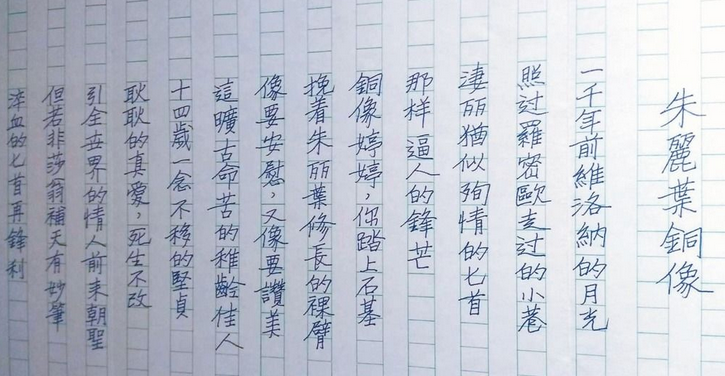 朱麗葉銅像
一千年前維洛納的月光
照过羅密歐走过的小巷
淒丽猶似殉情的匕首
那样逼人的鋒芒
銅像婷婷，你踏上石基
挽着朱丽葉修長的裸臂
像要安慰，又像要讚美
這曠古命苦的稚齡佳人
十四歲一念不移的堅貞
耿耿的真愛，死生不改
引全世界的情人前来朝聖
但若非莎翁補天有妙筆
淬血的匕首再鋒利